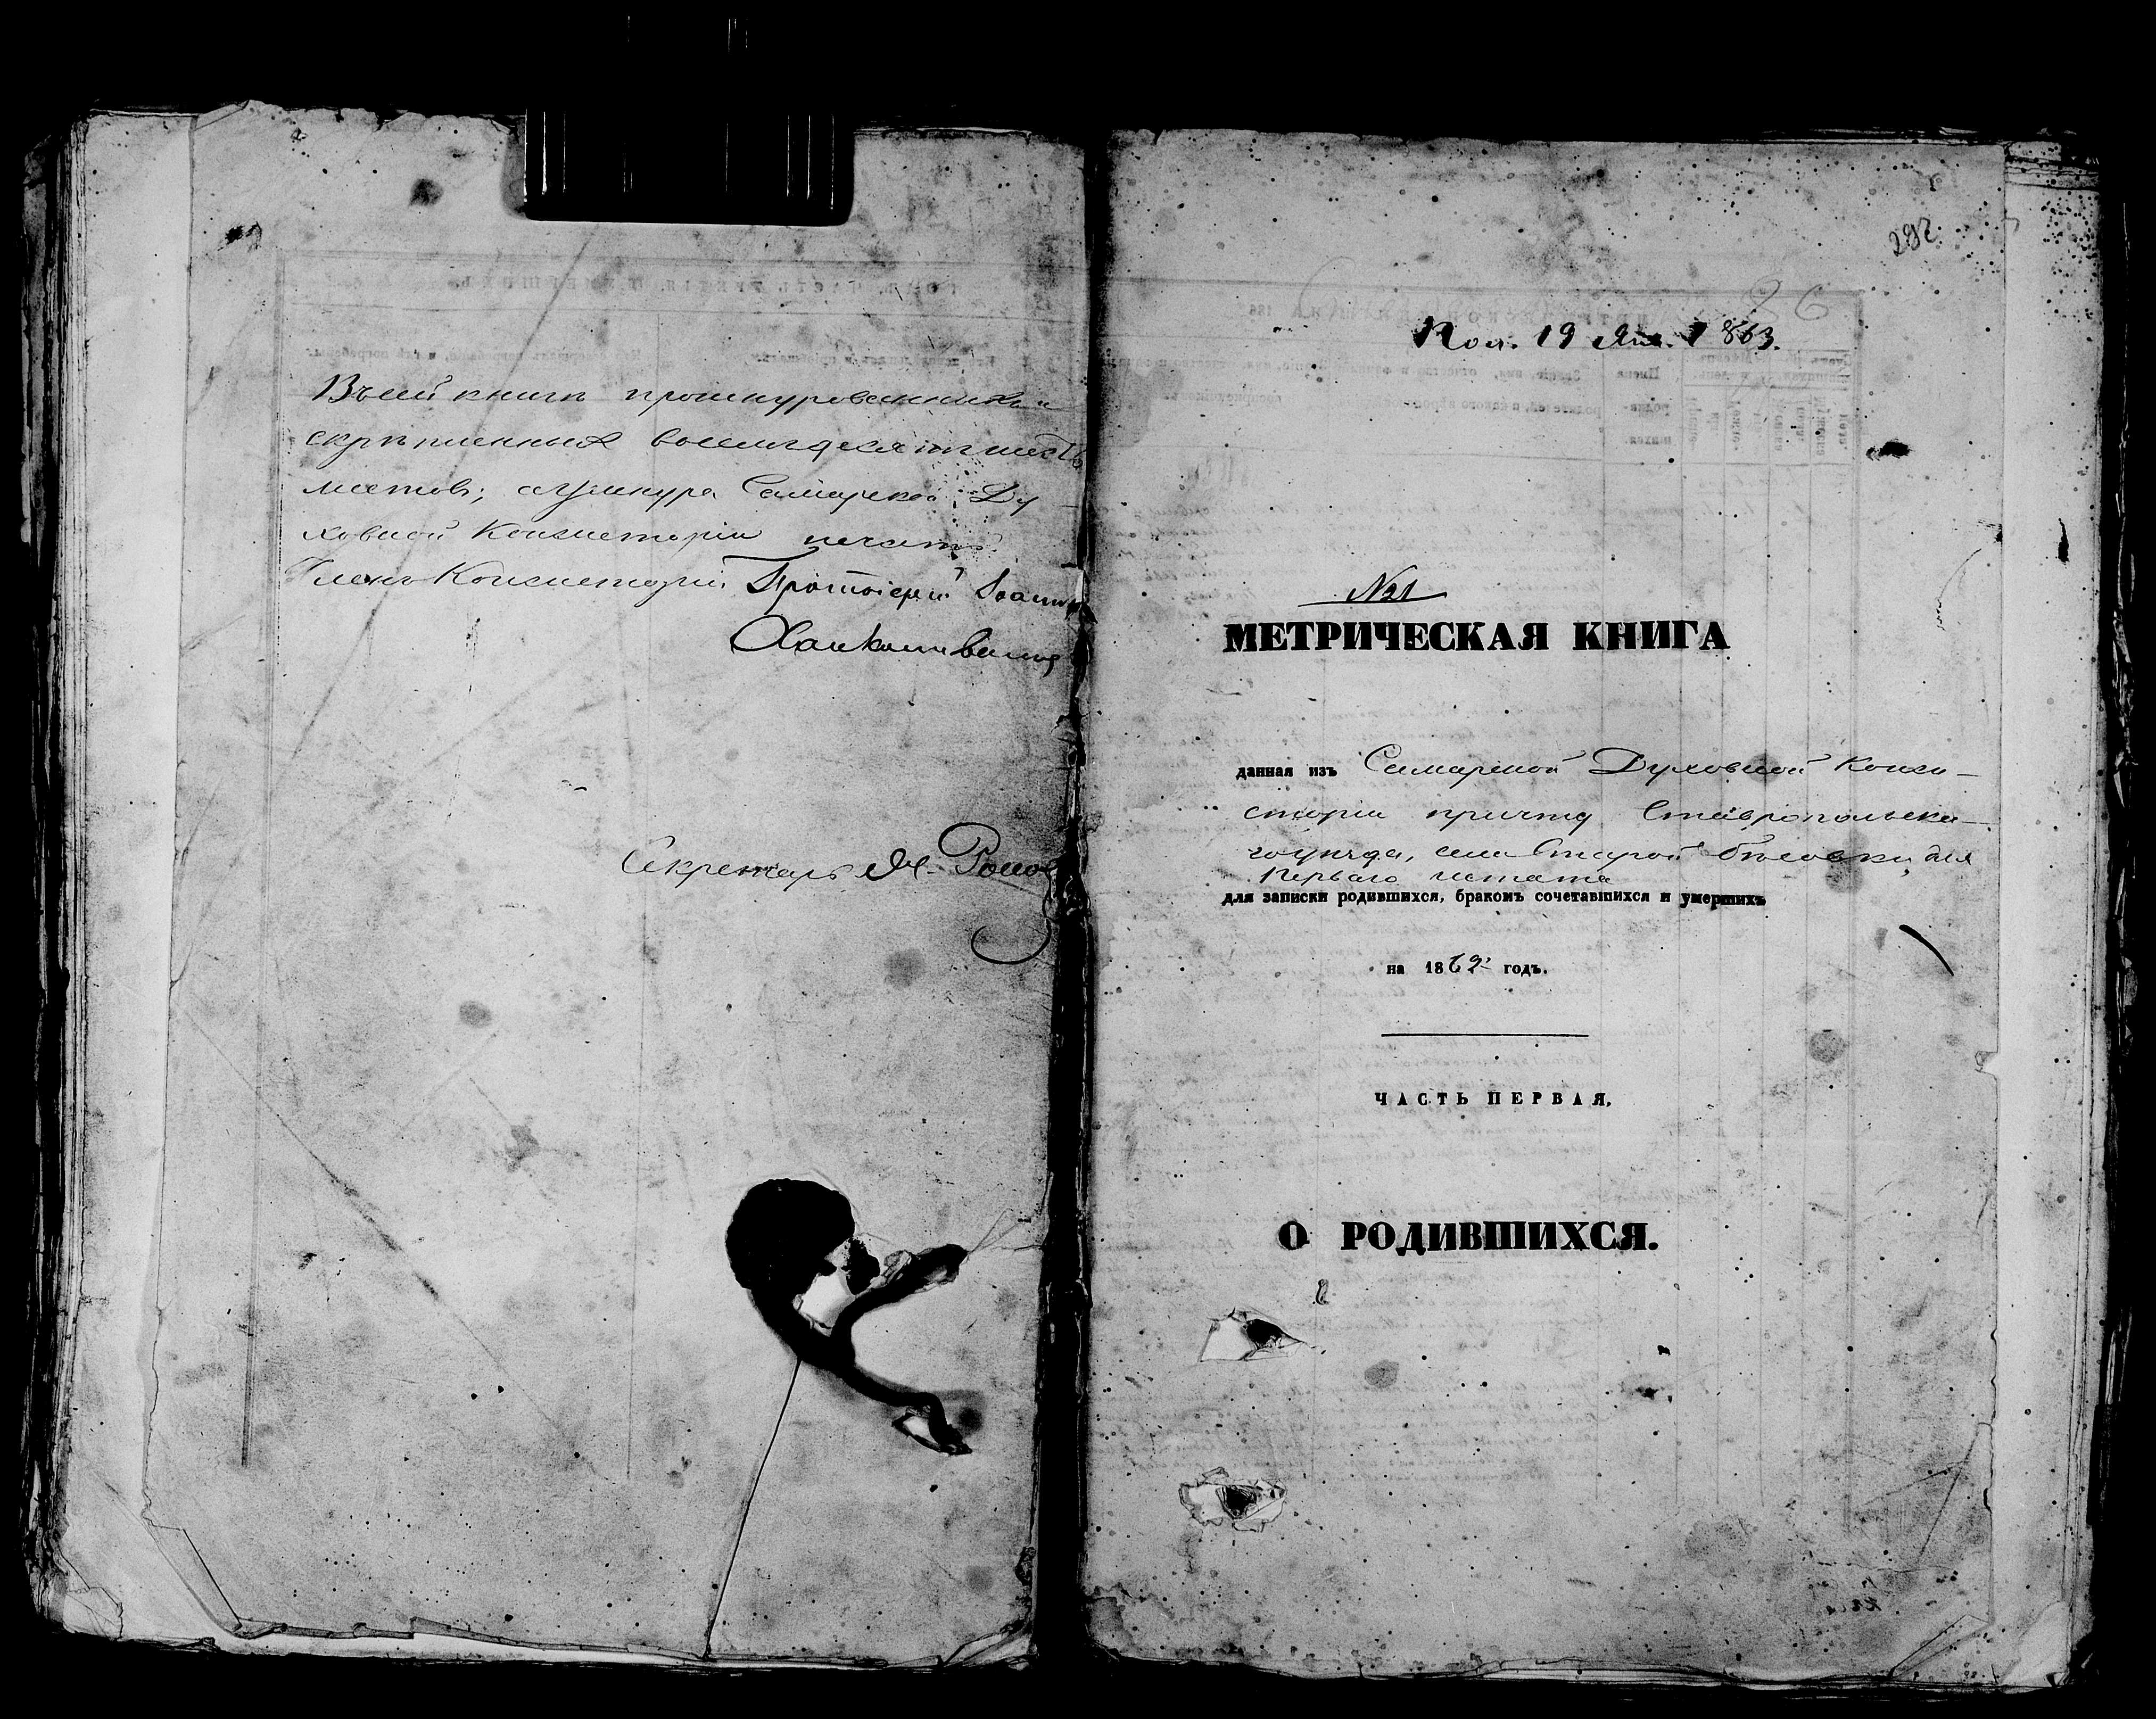 Въ сей книгѣ прошнурованныхъ и
скрѣпленныхъ восемьдесятъ шесть
листовъ; а у шнура Самарской Ду-
ховной Консисторіи печать.
Членъ Консисторіи Протоіерей Іоаннъ
Секретарь
292
86
Пол. 19 Янв. 1863.
№1
МЕТРИЧЕСКАЯ КНИГА
данная изъ Самарской Духовной Конси-
сторіи причту Ставропольска-
го уѣзда, села Старой Бѣсовки, для
Перваго штата
для записки родившихся, бракомъ сочетавшихся и умершихъ
на 1862 годъ.
ЧАСТЬ ПЕРВАЯ,
О РОДИВШИХСЯ.